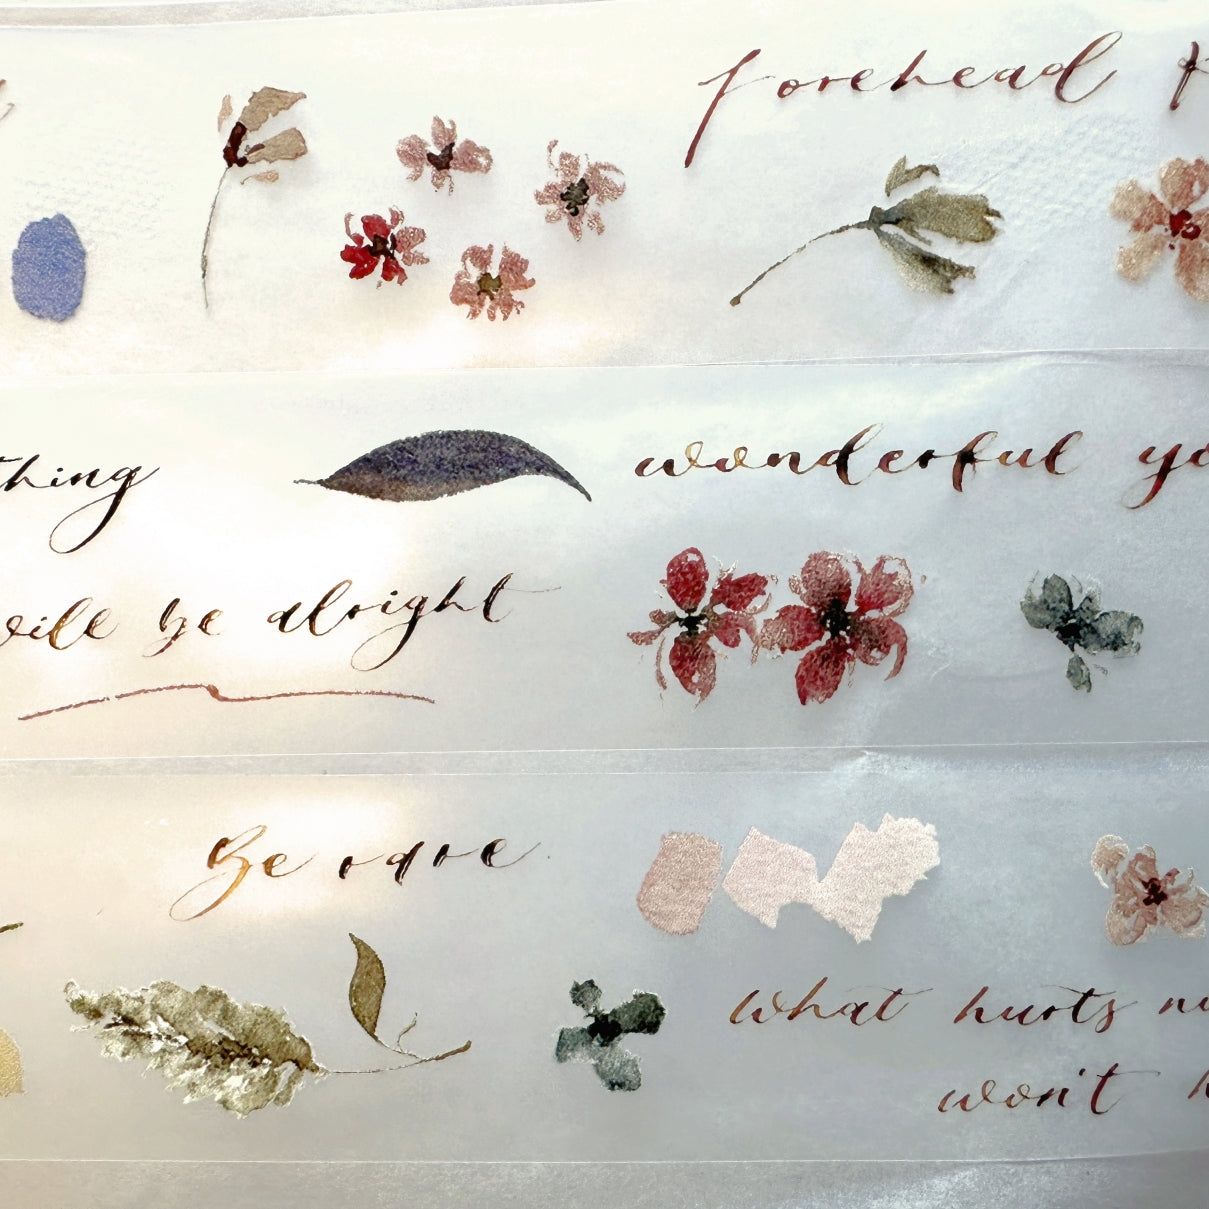 forehead
thing
wonderful
will be alright
Be rare
what hurts
won't